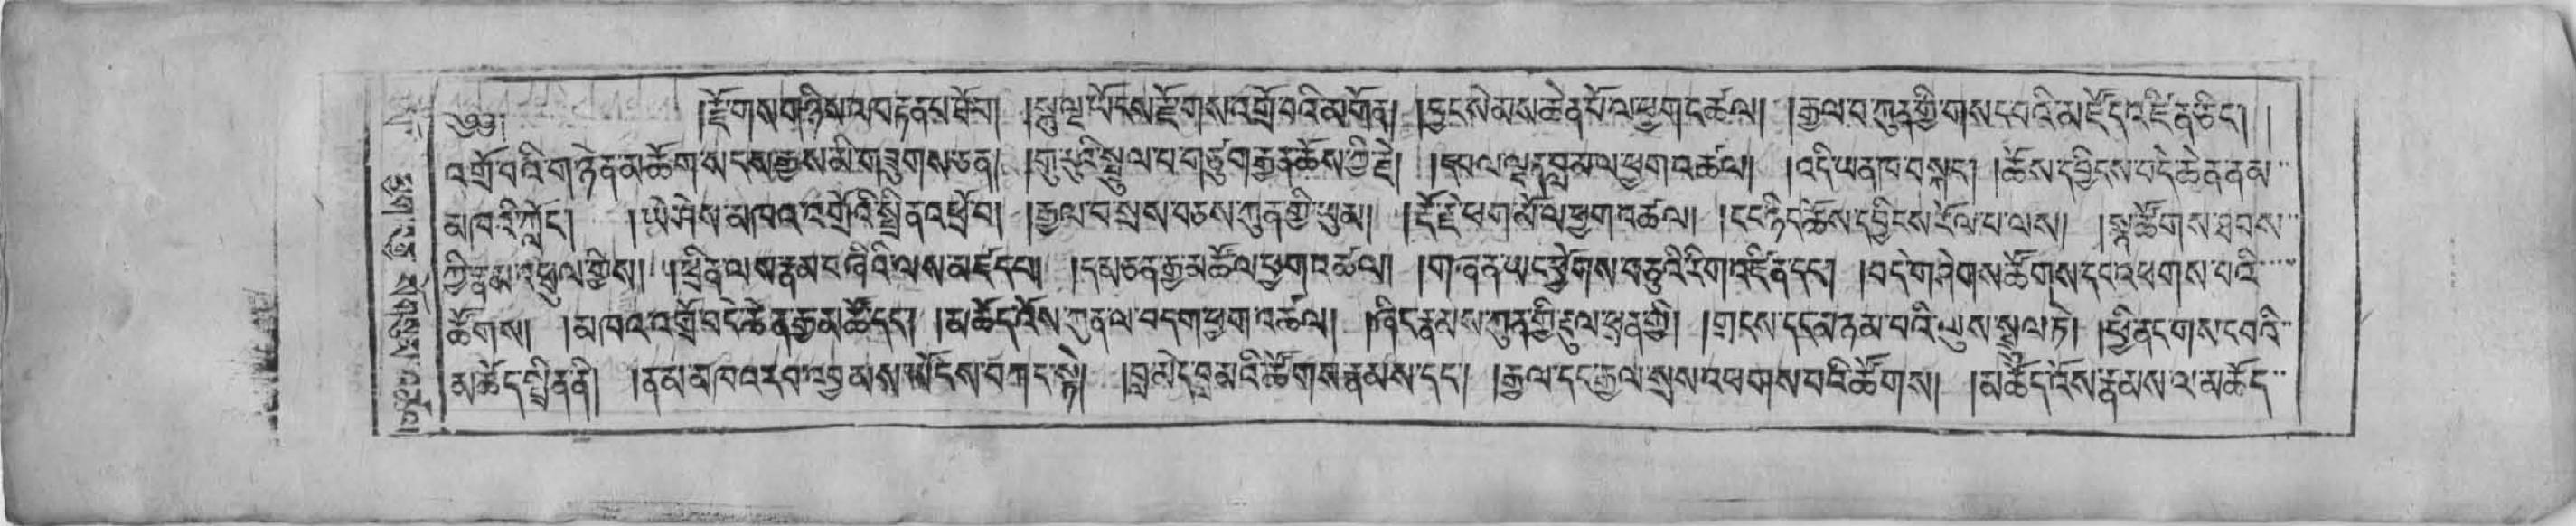 ༄༅། །རྫོགས་བ་ཉིས་ལ་བརྟན་པ་ཐོབ། །སྤྲུལ་པོངས་རྫོགས་འགྲོ་བའི་མགོན། །བྱང་སེམས་ཆེན་པོ་ལ་ཕྱག་འཚལ། །རྒྱལ་བ་ཀུན་གྱི་གསང་བའི་མཛོད་འཛིན་ཅིང་། །
འགྲོ་བའི་གཉེན་མཆོག་མ་ངས་རྒྱས་མི་གཟུགས་ཅན། །གུ་རུའི་སྤྲུལ་བ་གཙུག་རྒྱན་ཆོས་ཀྱི་རྗེ། །དཔལ་ལྡན་བླ་མ་ལ་ཕྱག་འཚལ། །འདི་ཡན་ཁ་བསྐང་། །ཆོས་དབྱིངས་བདེ་ཆེན་ནམ་
མཁའི་ཀློང་། །ཡེ་ཤེས་མཁའ་འགྲོའི་སྤྲིན་འཕྲོ་བ། །རྒྱལ་བ་སྲས་བཅས་ཀུན་གྱི་ཡུམ། །རྡོ་རྗེ་ཕག་མོ་ལ་ཕྱག་འཚལ། །ངང་ཉིད་ཆོས་དབྱིངས་རོལ་པ་ལས། །སྣ་ཚོགས་ཐབས་
ཀྱི་རྣམ་འཕྲུལ་གྱིས། །ཕྲིན་ལས་རྣམ་བཞིའི་ལས་མཛད་པ། །དམ་ཅན་རྒྱ་མཚོ་ལ་ཕྱག་འཚལ། །གཞན་ཡང་ཕྱོགས་བཅུའི་རིག་འཛིན་དང་། །བདེ་གཤེགས་ཚོགས་དང་འཕགས་བའི་
ཚོགས། །མཁའ་འགྲོ་བདེ་ཆེན་རྒྱ་མཚོ་དང་། །མཆོད་འོས་ཀུན་ལ་བདག་ཕྱག་འཚལ། །ཞིང་རྣམས་ཀུན་གྱི་རྡུལ་ཕྲན་གྱི། །གྲངས་དང་མཉམ་བའི་ལུས་སྤྲུལ་ཏེ། །ཕྱི་ནང་གསང་བའི་
མཆོད་སྤྲིན་ནི། །ནམ་མཁའ་རབ་འབྱམས་ཡོངས་བཀང་སྟེ། །བླ་མེད་བླ་མའི་ཚོགས་རྣམས་དང་། །རྒྱལ་དང་རྒྱལ་སྲས་འཕགས་བའི་ཚོགས། །མཆོད་འོས་རྣམས་ལ་མཆོད་